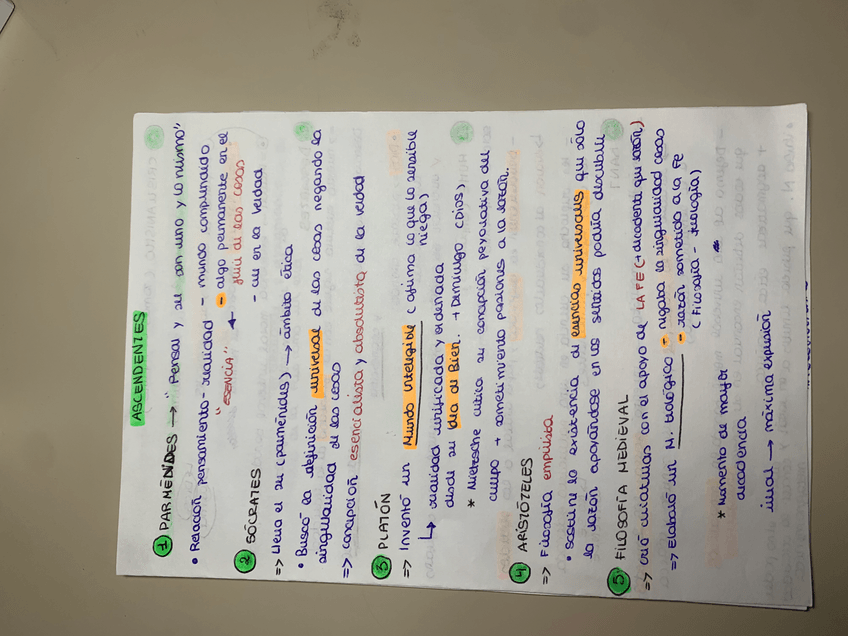 ASCENDENTES
1 PARMÉNIDES → "Pensar y ser son uno y lo mismo"
• Relación pensamiento - realidad - mundo comprendido
- algo permanente en el
"ESENCIA" ← ser de las cosas
- cree en la verdad
2 SÓCRATES
=> Lleva el ser (parménides) → ámbito ética
• Buscó la definición universal de las cosas negando la
singularidad de las cosas
=> concepción esencialista y absolutista de la verdad
3 PLATÓN
=> Inventó un Mundo inteligible (afirma lo que lo sensible
niega)
↳ realidad unificada y ordenada
desde su idea del Bien. → Demiurgo (Dios)
* Nietzsche critica su concepción peyorativa del
cuerpo + sometimiento pasiones a la razón.
4 ARISTÓTELES
=> Filosofía empirista
• Sostiene la existencia de esencias universales que sólo
la razón apoyándose en los sentidos podría descubrir
5 FILOSOFÍA MEDIEVAL
=> creó criaturas con el apoyo de LA FE (+ decadente que razón)
=> Elaboró un M. teológico - negaba la singularidad cosas
- razón sometida a la Fe
(Filosofía - teología)
* Momento de mayor
decadencia
irreal → máxima expresión